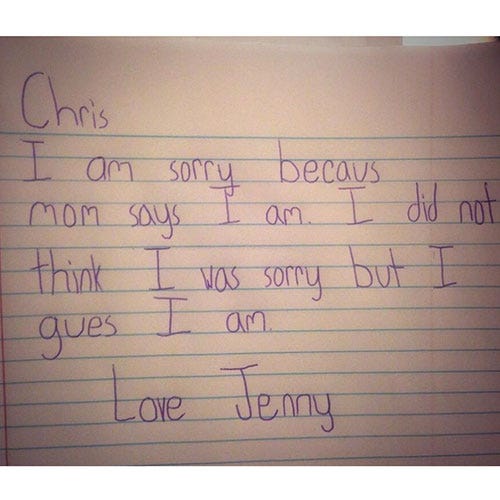 Chris
I am sorry becavs
mom says I am. I did not
think I was sorry but I
gues I am.
Love Jenny